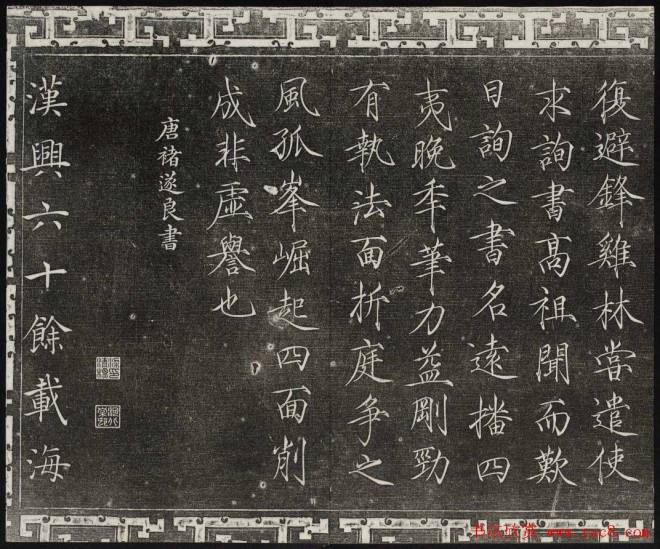 復避鋒雞林嘗遣使
求詢書高祖聞而歎
曰詢之書名遠播四
夷晚年筆力益剛勁
有執法面折庭爭之
風孤峯崛起四面削
成非虛譽也
唐褚遂良書
漢興六十餘載海
书法欣赏 www.yac8.com